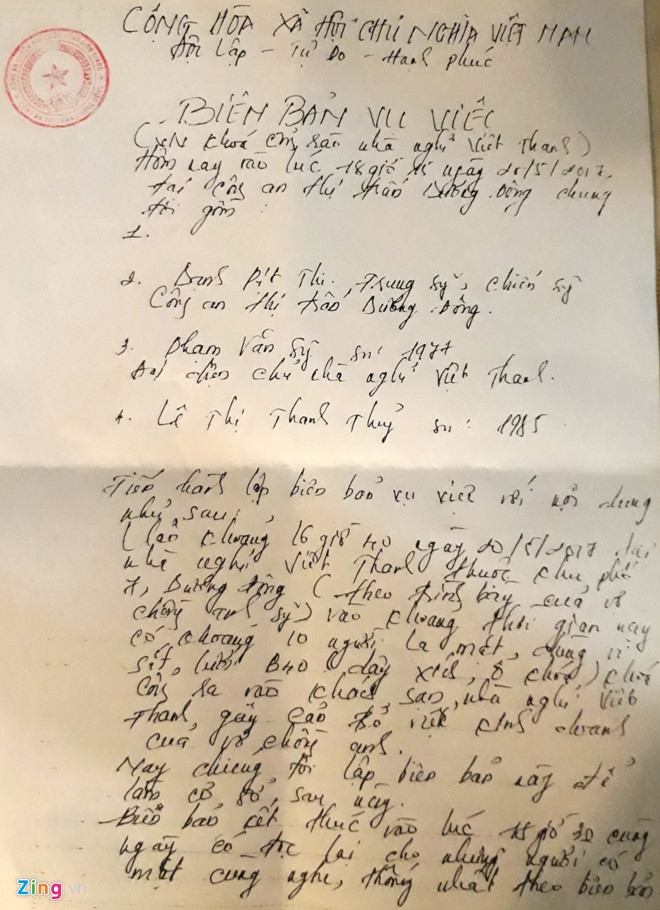 CỘNG HÒA XÃ HỘI CHỦ NGHĨA VIỆT NAM
Độc Lập - Tự Do - Hạnh phúc
BIÊN BẢN VỤ VIỆC
(khoá cổng sau nhà nghỉ Việt Thanh)
Hôm nay vào lúc 18 giờ ngày 20/5/2017,
tại công an thị trấn Dương Đông chúng
tôi gồm:
1.
2. Danh Thi, Trung sỹ, chiến sỹ
Công an thị trấn Dương Đông.
3. Phạm Văn Sỹ sn: 1977
Đại diện chủ nhà nghỉ Việt Thanh.
4. Lê Thị Thanh Thuỷ sn: 1985
Tiến hành lập biên bản vụ việc với nội dung
như sau:
Vào khoảng 16 giờ 40 ngày 20/5/2017 tại
nhà nghỉ Việt Thanh thuộc khu phố
7, Dương Đông (theo trình bày của vợ
chồng anh Sỹ) vào khoảng thời gian này
có khoảng 10 người lạ mặt, dùng
sắt, lưới B40 (dây xích, ổ khoá) khoá
cổng ra vào khách sạn, nhà nghỉ Việt
Thanh, gây cản trở việc kinh doanh
của vợ chồng anh.
Nay chúng tôi lập biên bản này để
làm cơ sở sau này.
Biên bản kết thúc vào lúc giờ 30 cùng
ngày có đọc lại cho những người có
mặt cùng nghe, thống nhất theo biên bản
Zing.vn